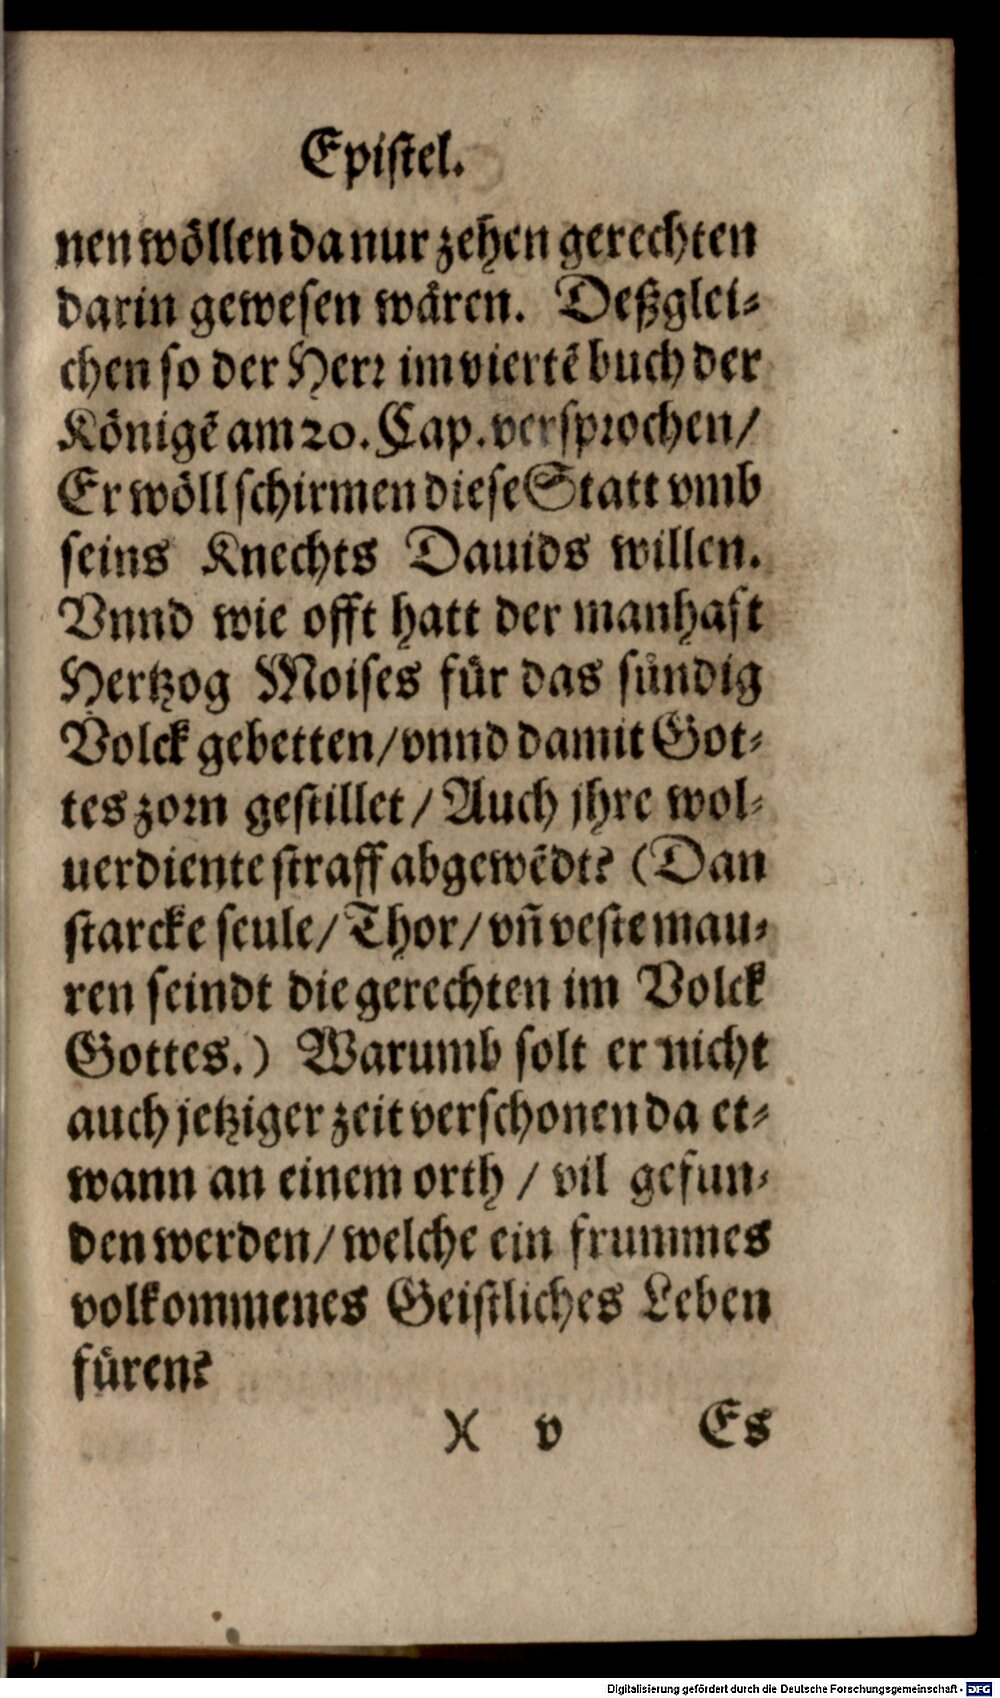 Epistel.
nen wöllen da nur zehen gerechten
darin gewesen wären. Deßglei-
chen so der Herr im viertẽ buch der
Königẽ am 20. Cap. versprochen/
Er wöll schirmen diese Statt vmb
seins Knechts Dauids willen.
Vnnd wie offt hatt der manhaft
Hertzog Moises für das sündig
Volck gebetten/ vnnd damit Got-
tes zorn gestillet / Auch jhre wol-
uerdiente straff abgewẽdt? (Dan
starcke seule/ Thor/ vñ veste mau-
ren seindt die gerechten im Volck
Gottes.) Warumb solt er nicht
auch jetziger zeit verschonen da et-
wann an einem orth / vil gefun-
den werden/ welche ein frummes
volkommenes Geistliches Leben
füren?
X v Es
Digitalisierung gefördert durch die Deutsche Forschungsgemeinschaft - DFG